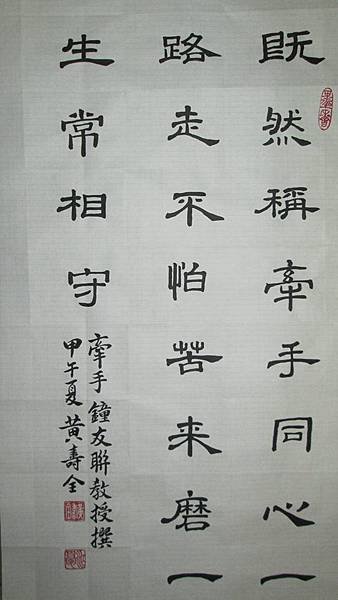 既然稱牽手同心一
路走不怕苦来磨一
生常相守
牽手鐘友聯教授撰
甲午夏黃壽全